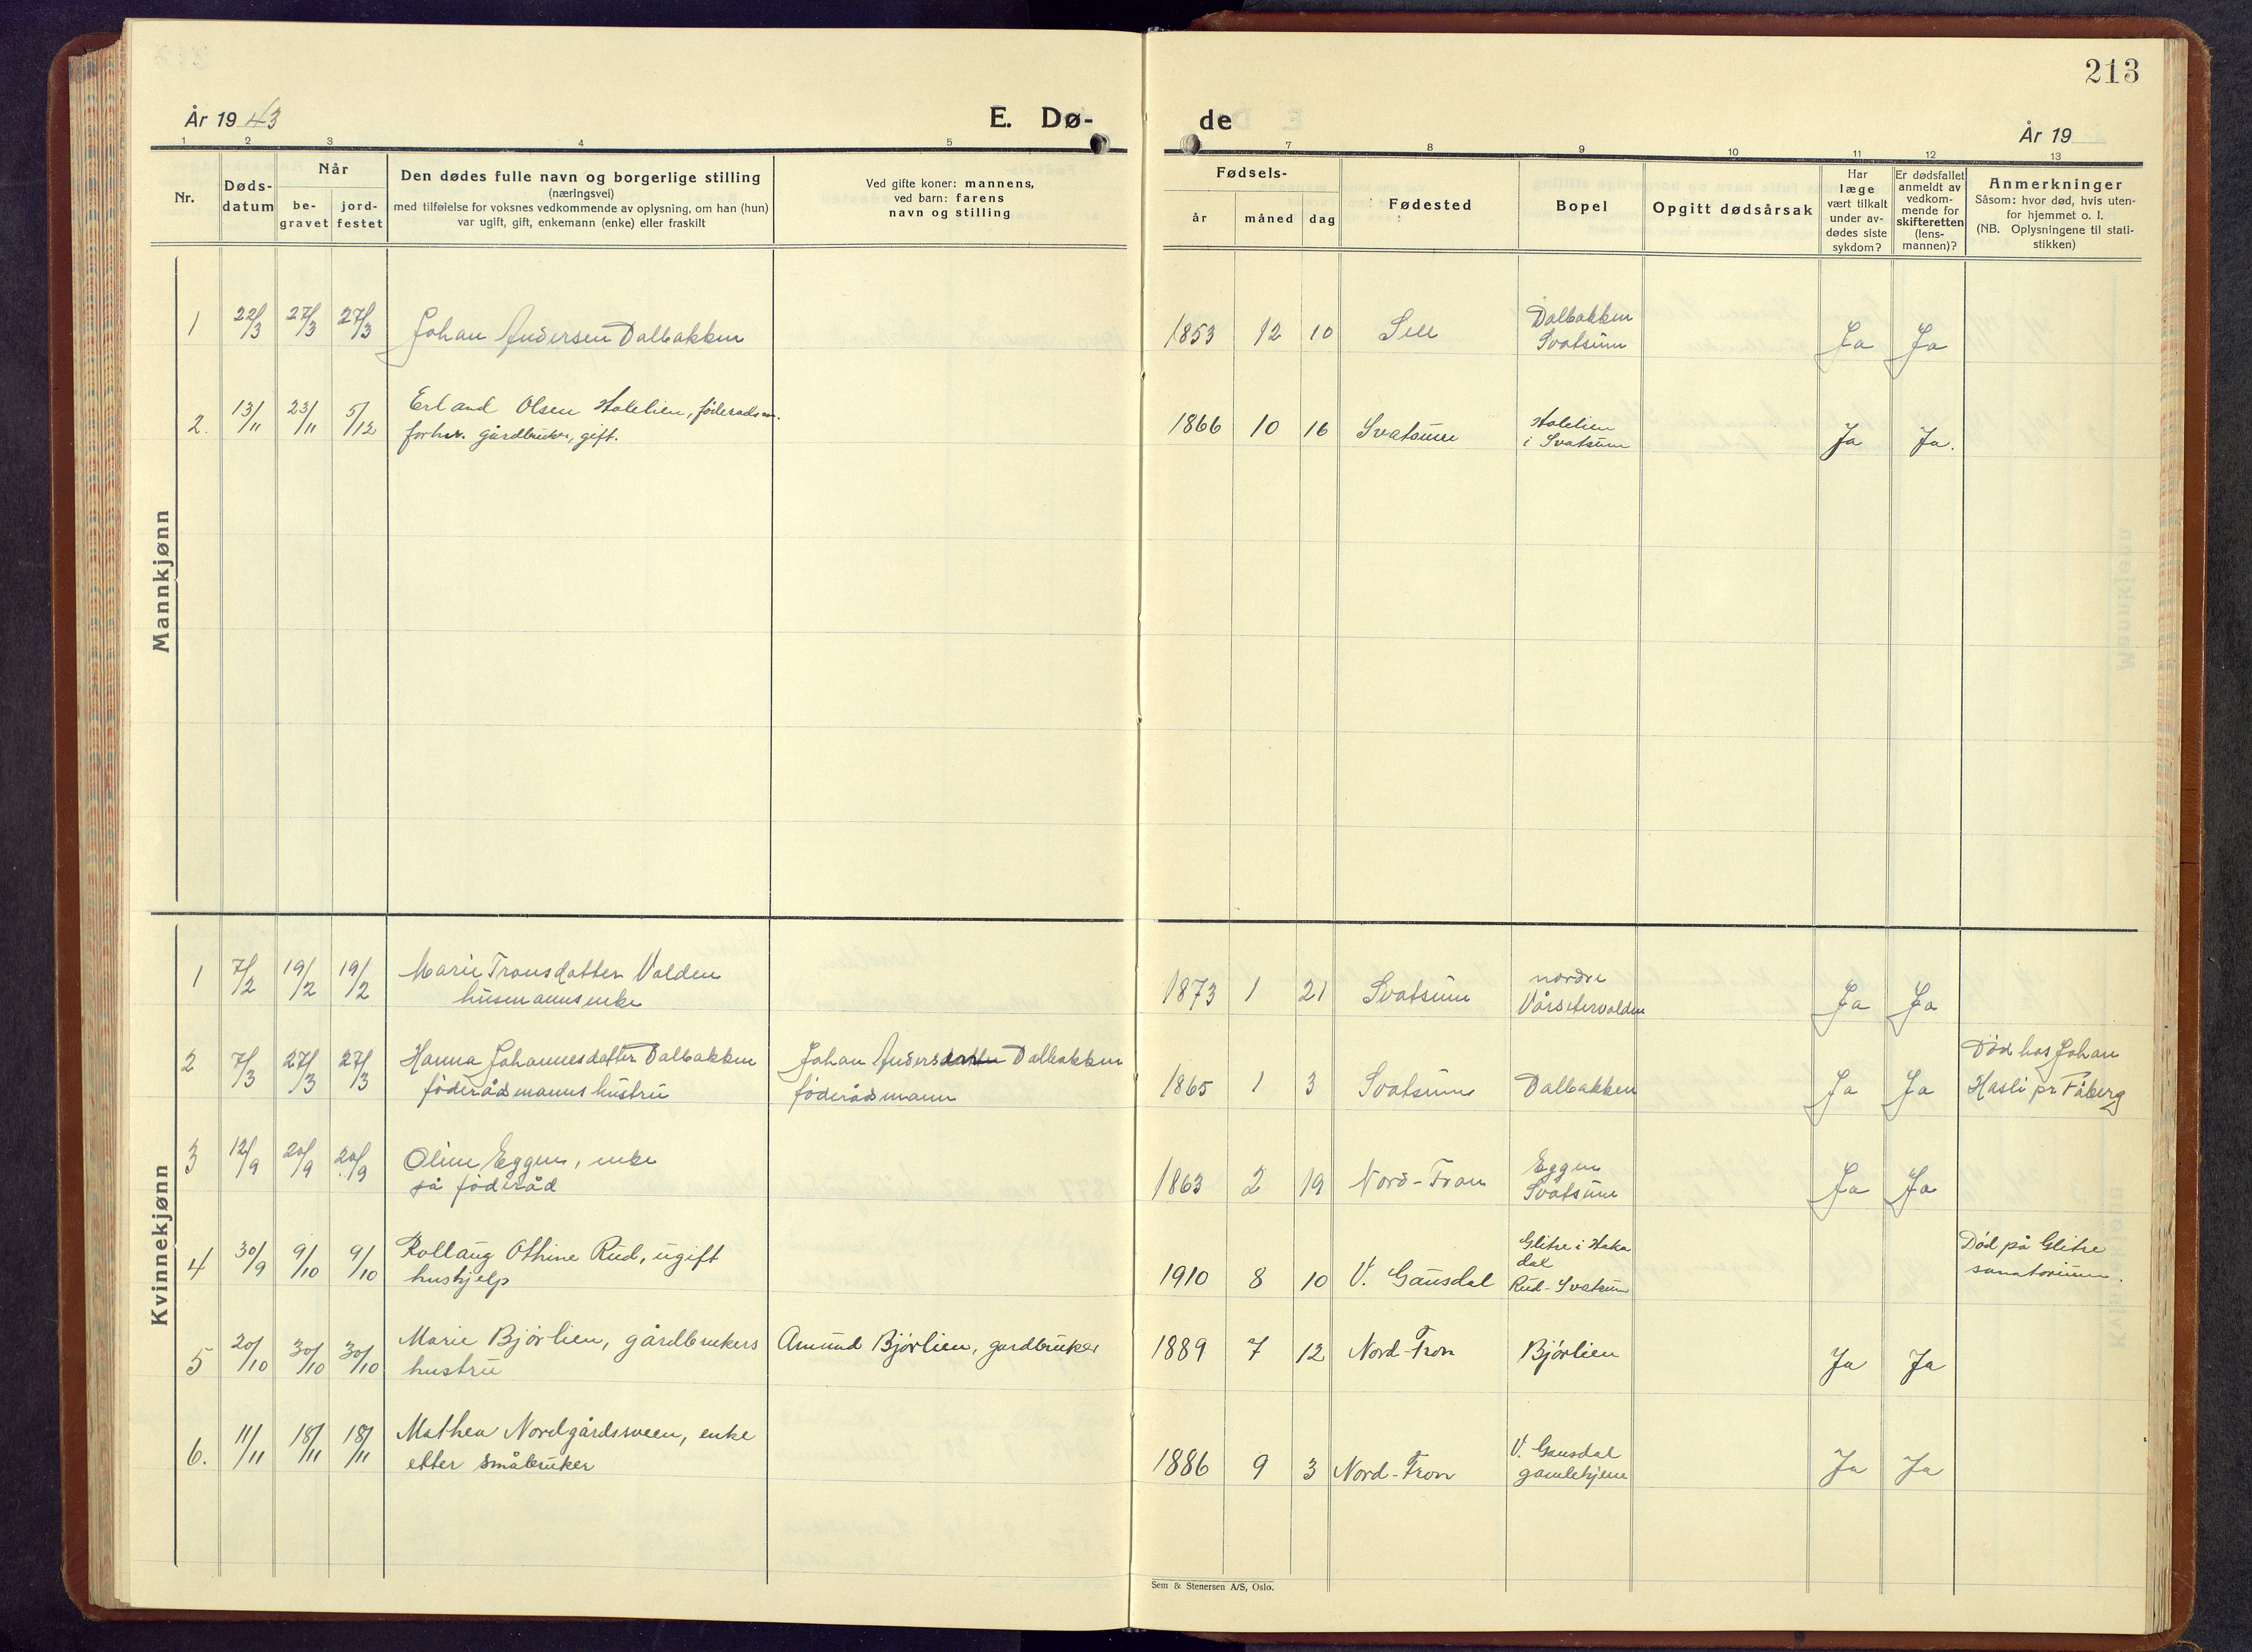 213
År 1943
E. Dø-
de
År 19
1 2 3 4 5 7 8 9 10 11 12 13
Nr.
Døds-
datum
Når
be-
gravet
jord-
festet
Den dødes fulle navn og borgerlige stilling
(næringsvei)
med tilføielse for voksnes vedkommende av oplysning, om han (hun)
var ugift, gift, enkemann (enke) eller fraskilt
Ved gifte koner: mannens,
ved barn: farens
navn og stilling
Fødsels-
år måned dag
Fødested
Bopel
Opgitt dødsårsak
Har
læge
vært tilkalt
under av-
dødes siste
sykdom?
Er dødsfallet
anmeldt av
vedkom-
mende for
skifteretten
(lens-
mannen)?
Anmerkninger
Såsom: hvor død, hvis uten-
for hjemmet o. l.
(NB. Oplysningene til stati-
stikken)
Mannkjønn
1 22/3 27/3 27/3 Johan Andersen Dalbakken 1853 12 10 Sel Dalbakken
Svatsum Ja Ja
2. 13/11 23/11 5/12 Erland Olsen Holelien, föderadsm.
forhv. gårdbruker, gift. 1866 10 16 Svatsum Holelien
i Svatsum Ja Ja.
Kvinnekjønn
1 7/2 19/2 19/2 Marie Tronsdatter Volden
husmannsenke 1873 1 21 Svatsum nordre
Vårsetervolden Ja Ja
2 7/3 27/3 27/3 Hanna Johannesdatter Dalbakken
föderådsmanns hustru Johan Andersdatter Dalbakken
föderådsmann 1865 1 3 Svatsum Dalbakken Ja Ja Död hos Johan
Hasli pr Fåberg
3 12/9 20/9 20/9 Oline Eggen, enke
på föderåd 1863 2 19 Nord-Fron Eggen
Svatsum Ja Ja
4 30/9 9/10 9/10 Rollaug Othine Rud, ugift
hushjelp 1910 8 10 V. Gausdal Glitre i Haka
dal
Rud-Svatsum Død på Glitre
sanatorium.
5 20/10 30/10 30/10 Marie Bjørlien, gårdbrukers
hustru Amund Bjørlien, gardbruker 1889 7 12 Nord-Fron Bjørlien Ja Ja
6. 11/11 18/11 18/11 Mathea Nordgårdsveen, enke
etter småbruker 1886 9 3 Nord-Fron V. Gausdal
gamlehjem Ja Ja
Sem & Stenersen A/S, Oslo.